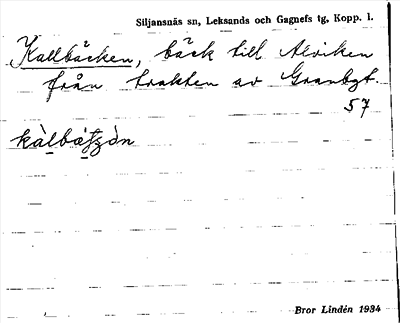 Siljansnäs sn, Leksands och Gagnefs tg, Kopp. l.
Kallbäcken, bäck till Alviken
från trakten av Granbyt.
57
Bror Lindén 1934